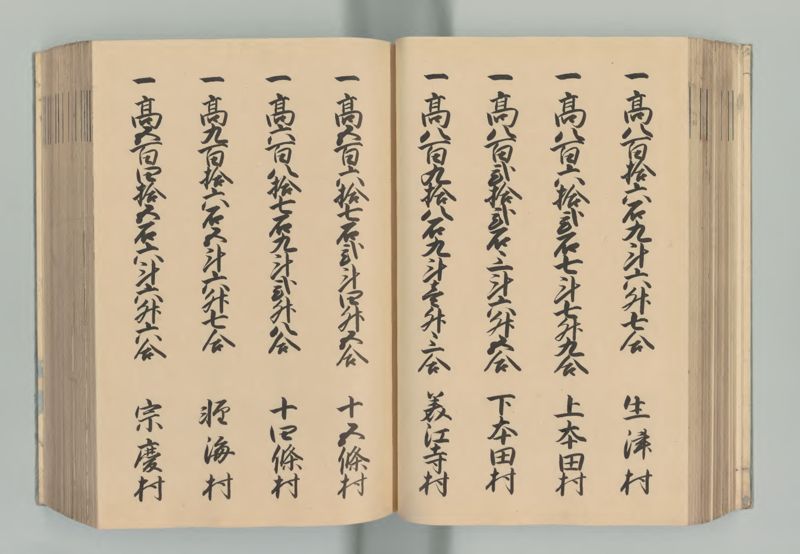 一 高八百拾六石九斗六升七合 生津村
一 高八百六拾弐石七斗七升九合 上本田村
一 高八百弐拾弐石三斗六升五合 下本田村
一 高八百九拾八石九斗壱升三合 美江寺村
一 高五百六拾七石弐斗四升五合 十五條村
一 高六百八拾七石九斗弐升八合 十四條村
一 高九百拾六石五斗六升七合 海村
一 高五百四拾五石六斗六升六合 宗慶村